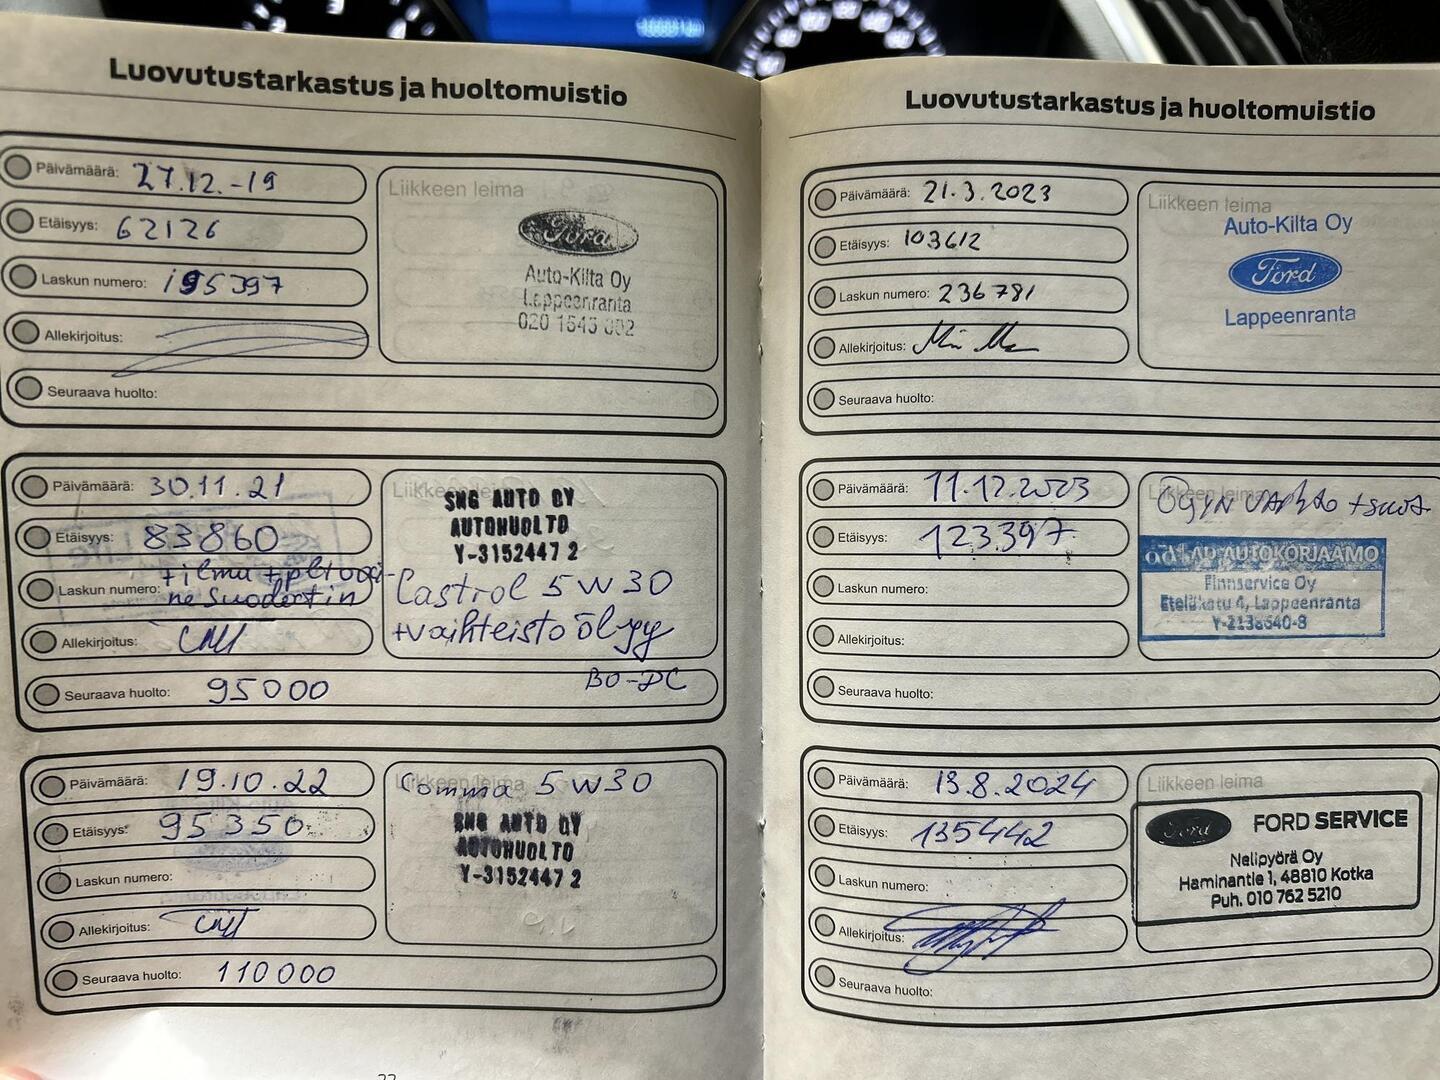 Luovutustarkastus ja huoltomuistio
Päivämäärä: 27.12.-19
Etäisyys: 62126
Laskun numero: 195397
Allekirjoitus:
Seuraava huolto:
Liikkeen leima
Ford
Auto-Kilta Oy
Lappeenranta
Päivämäärä: 30.11.21
Etäisyys: 83860
Laskun numero:
Allekirjoitus:
Seuraava huolto: 95000
SNG AUTO OY
AUTOHUOLTO
Y-3152447 2
Castrol 5W30
+vaihteisto öljy
Päivämäärä: 19.10.22
Etäisyys: 95350
Laskun numero:
Allekirjoitus:
Seuraava huolto: 110000
Liikkeen leima
Comma 5W30
SNG AUTO OY
AUTOHUOLTO
Y-3152447 2
Luovutustarkastus ja huoltomuistio
Päivämäärä: 21.3.2023
Etäisyys: 103612
Laskun numero: 236781
Allekirjoitus:
Seuraava huolto:
Liikkeen leima
Auto-Kilta Oy
Ford
Lappeenranta
Päivämäärä: 11.12.2023
Etäisyys: 123397
Laskun numero:
Allekirjoitus:
Seuraava huolto:
Liikkeen leima
AD AUTOKORJAAMO
Finnservice Oy
Eteläkatu 4, Lappeenranta
Päivämäärä: 19.8.2024
Etäisyys: 135442
Laskun numero:
Allekirjoitus:
Seuraava huolto:
Liikkeen leima
Ford FORD SERVICE
Nelipyörä Oy
Haminantie 1, 48810 Kotka
Puh. 010 762 5210